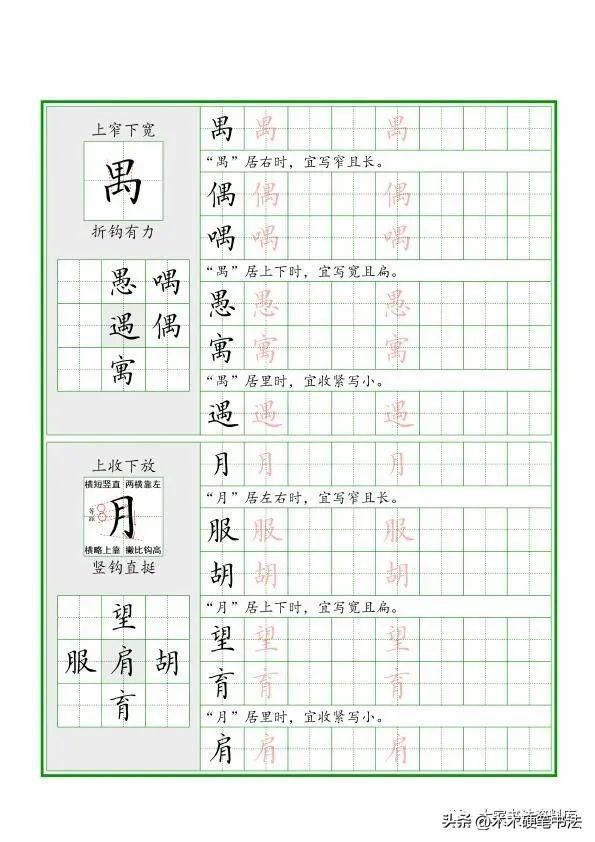 上窄下宽
禺
折钩有力
愚 喁
遇 偶
寓
禺 禺 禺
“禺”居右时，宜写窄且长。
偶 偶 偶
喁 喁 喁
“禺”居上下时，宜写宽且扁。
愚 愚 愚
寓 寓 寓
“禺”居里时，宜收紧写小。
遇 遇 遇
上收下放
横短竖直 两横靠左
等距
月
横略上靠 撇比钩高
竖钩直挺
望
服 肩 胡
育
月 月 月
“月”居左右时，宜写窄且长。
服 服 服
胡 胡 胡
“月”居上下时，宜写宽且扁。
望 望 望
育 育 育
“月”居里时，宜收紧写小。
肩 肩 肩
头条 @木木硬笔书法